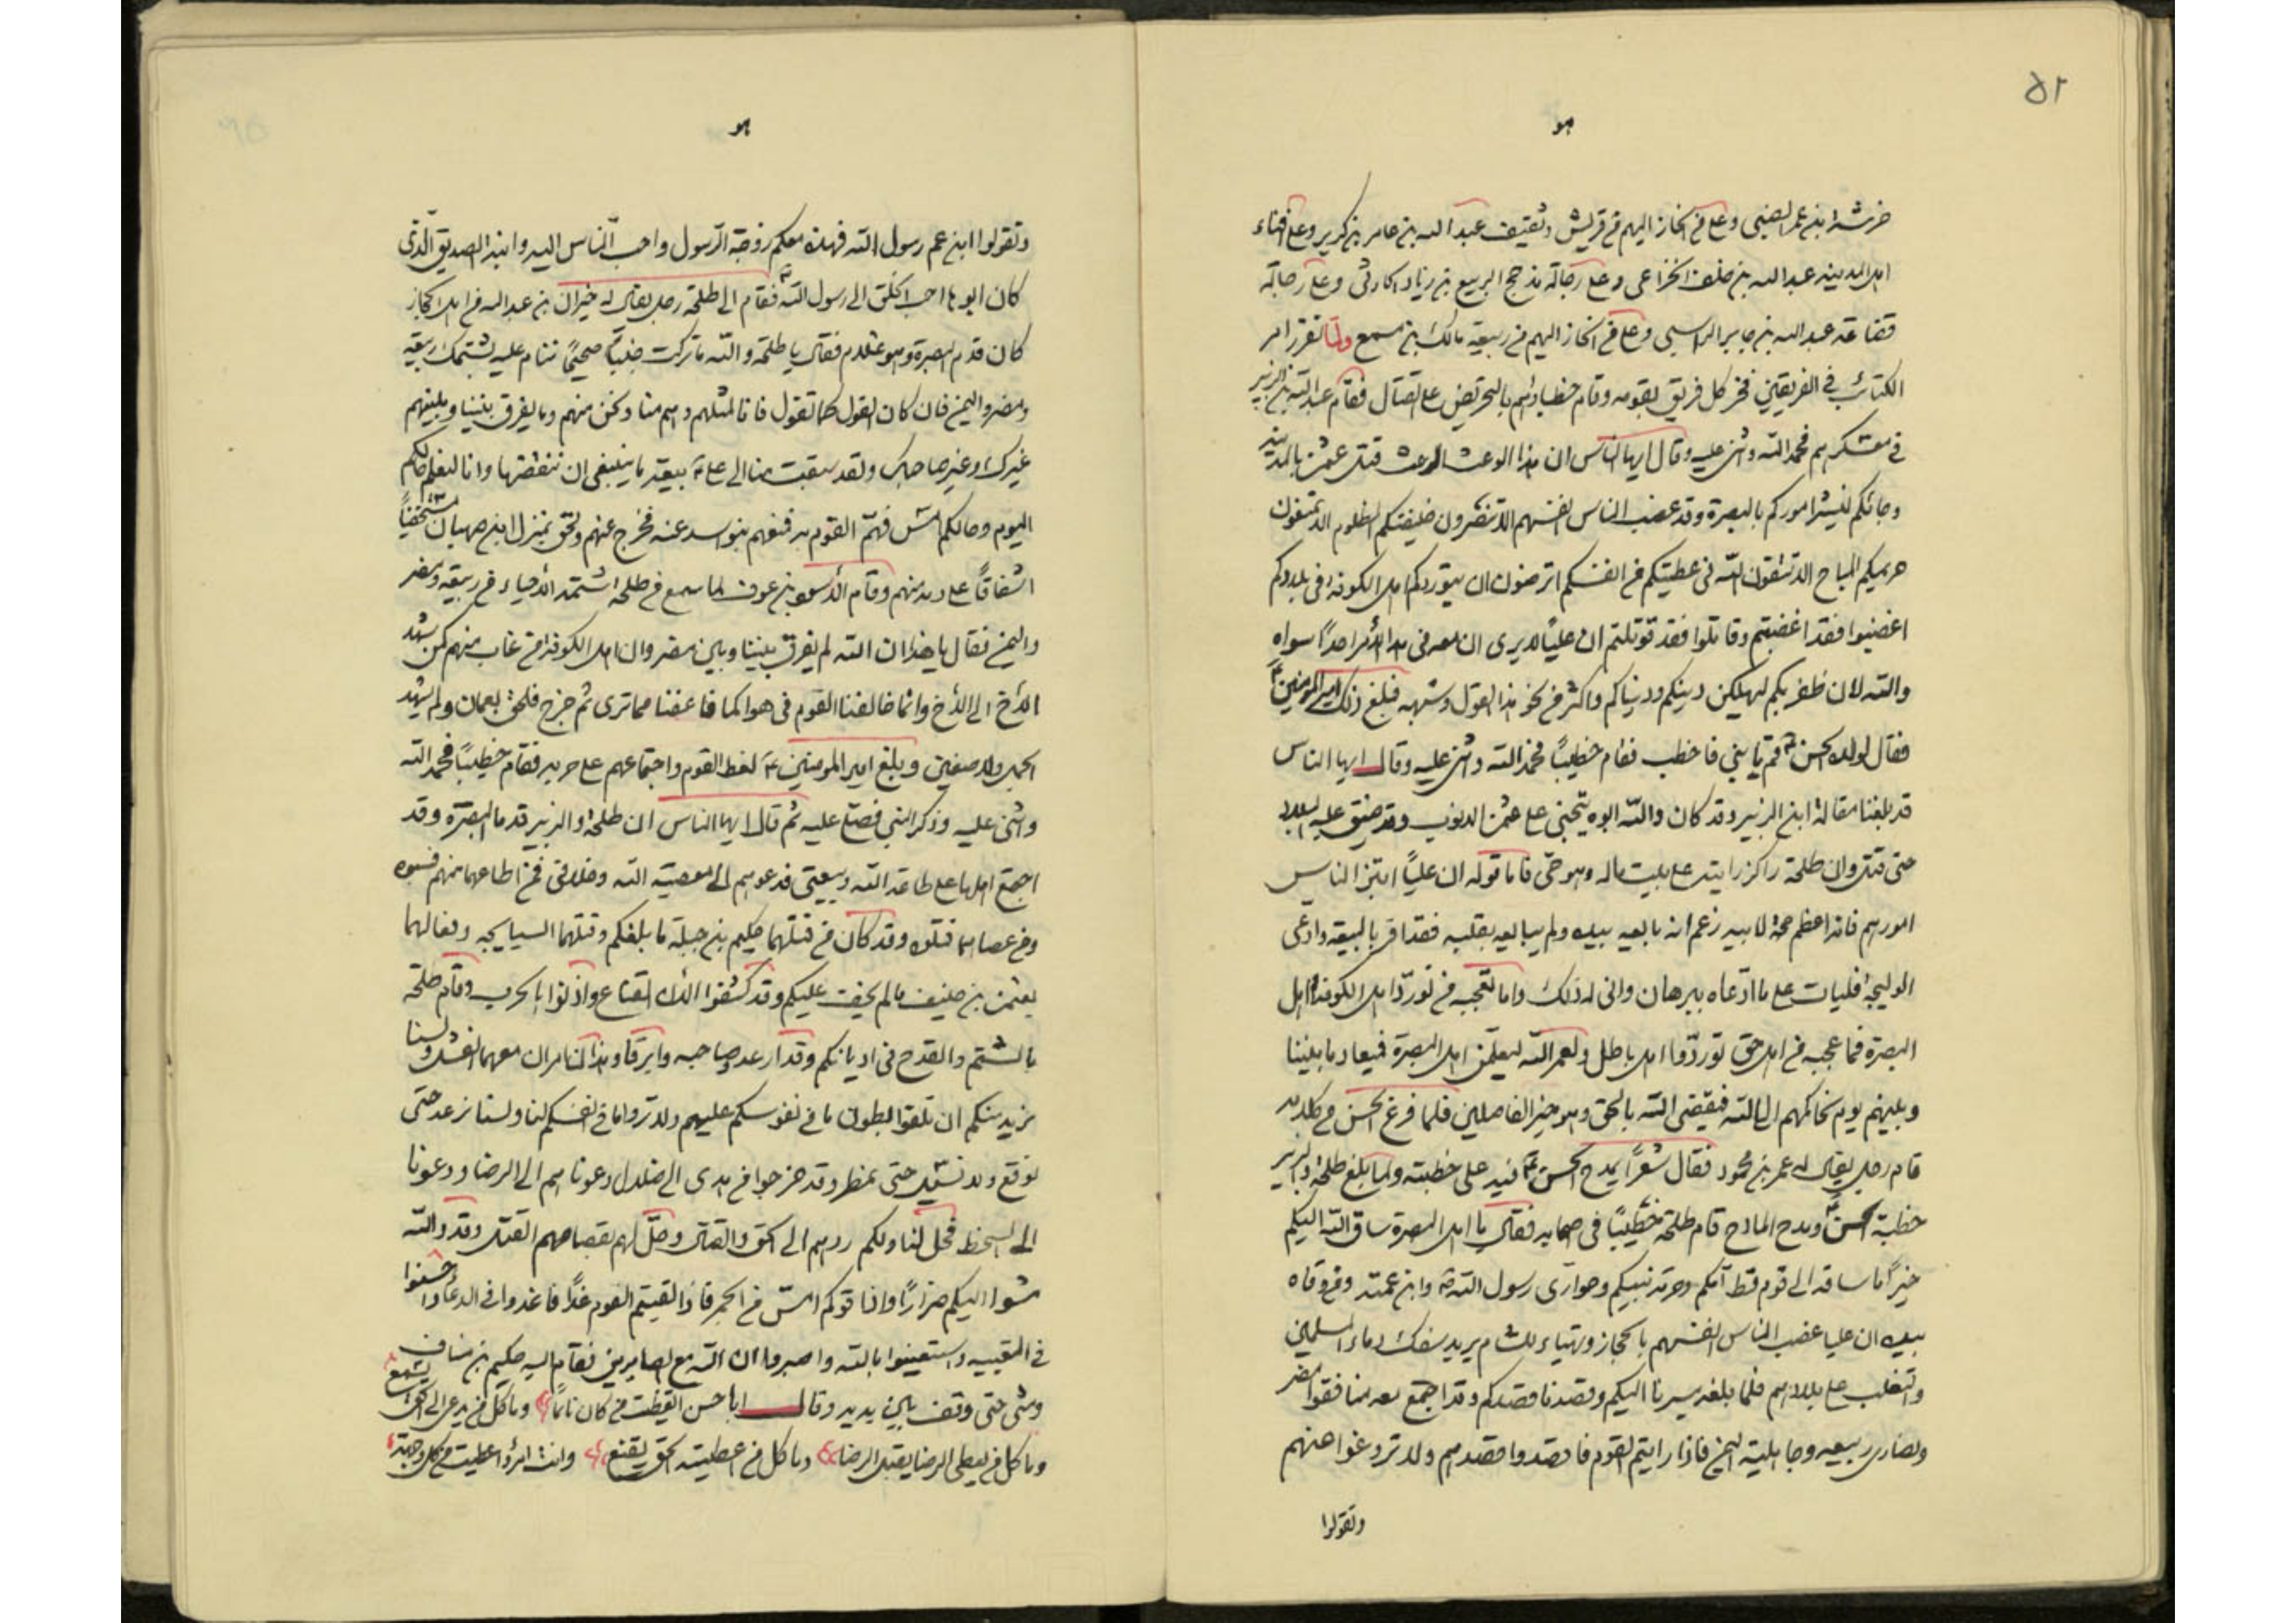 ٥٢
هو
خرشة ابن عمر الضبى وعلى من انحاز اليهم من قريش وثقيف عبد الله بن عامر بن كريز وعلى افناء
اهل المدينه عبد الله بن خلف الخزاعى وعلى رجالة مذحج الربيع بن زياد الحارثى وعلى رجالة
قضاعة عبد الله بن جابر الراسبى وعلى من انحاز اليهم من ربيعة مالك بن مسمع ولما تقرر امر
الكتائب فى الفريقين فخر كل فريق بقومه وقام خطباؤهم بالتحريض على القتال فقام عبد الله بن الزبير
فى معسكرهم فحمد الله واثنى عليه وقال ايها الناس ان هذا الوعث الرعث قتل عثمن بالمدينه
وجائكم لينشر اموركم بالبصرة وقد غصب الناس انفسهم الا تنصرون خليفتكم المظلوم الا تمنعون
حريمكم المباح الا تتقون الله فى عطيتكم من انفسكم اترضون ان يتوردكم اهل الكوفة فى بلادكم
اغضبوا فقد اغضبتم وقاتلوا فقد قوتلتم ان علياً لا يرى ان معه فى هذا الأمر احداً سواه
والله لان ظفر بكم ليهلكن دينكم ودنياكم واكثر من نحو هذا القول وشبهه فبلغ ذلك امير المومنين ع
فقال لولده الحسن ع قم يا بنى فاخطب فقام خطيباً فحمد الله واثنى عليه وقال ايها الناس
قد بلغنا مقالة ابن الزبير وقد كان والله ابوه يتجنى على عثمن الذنوب وقد ضيق عليه البلاد
حتى قتل وان طلحة راكز رايته على بيت ماله وهو حى فاما قوله ان علياً ابتز الناس
امورهم فانه اعظم حجة لابيه زعم انه بايعه بيده ولم يبايعه بقلبه فقد اقر بالبيعة وادعى
الوليجة فليات على ما ادعاه ببرهان وانى له ذلك واما تعجبه من تورد اهل الكوفة اهل
البصرة فما عجبه من اهل حق توردوا اهل باطل ولعمر الله ليعلمن اهل البصرة فميعاد ما بيننا
وبينهم يوم نحاكمهم الى الله فيقضى الله بالحق وهو خير الفاصلين فلما فرغ الحسن من كلامه
قام رجل يقال له عمر بن محمود فقال شعراً يمدح الحسن ع فيه على خطبته ولما بلغ طلحة والزبير
خطبة الحسن ع ومدح المادح قام طلحة خطيباً فى اصحابه فقال يا اهل البصرة ساق الله اليكم
خيراً ما ساقه الى قوم قط امكم وحرمة نبيكم وحوارى رسول الله ص وابن عمته ومن وقاه
بيده ان عليا غصب الناس انفسهم بالحجاز وتهياء للشام يريد سفك دماء المسلمين
والتغلب على بلادهم فلما بلغه مسيرنا اليكم وقصدنا قصدكم وقد اجتمع معه منافقوا مضر
ونصارى ربيعه وجاهلية اليمن فاذا رايتم القوم فاقصدوا قصدهم ولا تروغوا عنهم
وتقولوا
هو
وتقولوا ابن عم رسول الله فهذه معكم زوجة الرسول واحب الناس اليه وابنة الصديق الذى
كان ابوها احب الخلق الى رسول الله ص فقام الى طلحة رجل يقال له خيران بن عبد الله من اهل الحجاز
كان قدم البصرة وهو غلام فقال يا طلحة والله ما تركت جنباً صحيحاً ننام عليه بشتمك ربيعة
ومضر واليمن فان كان القول كما تقول فانا لمثلهم وهم منا ونحن منهم وما يفرق بيننا وبينهم
غيرك وغير صاحبك ولقد سبقت منا الى على ع بيعة ما ينبغى ان ننقضها وانا لنعلم حالكم
اليوم وحالكم امس فهم القوم به فمنعهم بنو اسد عنه فخرج عنهم ولحق بمنزل ابن صهبان مستخفياً
اشفاقاً على دمه منهم وقام الأسود بن عوف لما سمع من طلحه شتمه الأحياء من ربيعة ومضر
واليمن فقال يا هذا ان الله لم يفرق بيننا وبين مضر وان اهل الكوفة من غاب منهم كمن شهد
الأخ الى الأخ وانما خالفنا القوم فى هواكما فاعفنا مما ترى ثم خرج فلحق بعمان ولم يشهد
الجمل ولا صفين وبلغ امير المومنين ع لغط القوم واجتماعهم على حربه فقام خطيباً فحمد الله
واثنى عليه وذكر النبى فصلى عليه ثم قال ايها الناس ان طلحة والزبير قدما البصرة وقد
اجتمع اهلها على طاعة الله وبيعتى فدعوهم الى معصية الله وخلافى فمن اطاعهما منهم فتنوه
ومن عصاهما قتلوه وقد كان من قتلهما حكيم بن جبلة ما بلغكم وقتلهما السبابجه وفعالهما
بعثمن بن حنيف ما لم يخف عليكم وقد كشفوا الان القناع واذنوا بالحرب وقام طلحة
بالشتم والقدح فى اديانكم وقد ارعد وصاحبه وابرقا وهذان امران معهما الفشل ولسنا
نريد منكم ان تلقوا بطون ما فى نفوسكم عليهم ولا تروا ما فى انفسكم لنا ولسنا نرعد حتى
نوقع ولا نسيل حتى نمطر وقد خرجوا من هدى الى ضلال دعوناهم الى الرضا ودعونا
الى السخط فحل لنا ولكم ردهم الى الحق والقتال وحل لهم بقصاصهم القتل وقد والله
مشوا اليكم ضراراً واذاقوكم امس من الجمر فاذا لقيتم القوم غداً فاعذروا فى الدعاء واحسنوا
فى التقيه واستعينوا بالله واصبروا ان الله مع الصابرين فقام اليه حكيم بن مناف
ومشى حتى وقف بين يديه وقال ابا حسن ايقظت من كان نائماً وما كل من يدعى الى الحق يسمع
وما كل من يعطى الرضا يقبل الرضا وما كل من اعطيته الحق يقنع وانت امرؤ اعطيت من كل وجهة